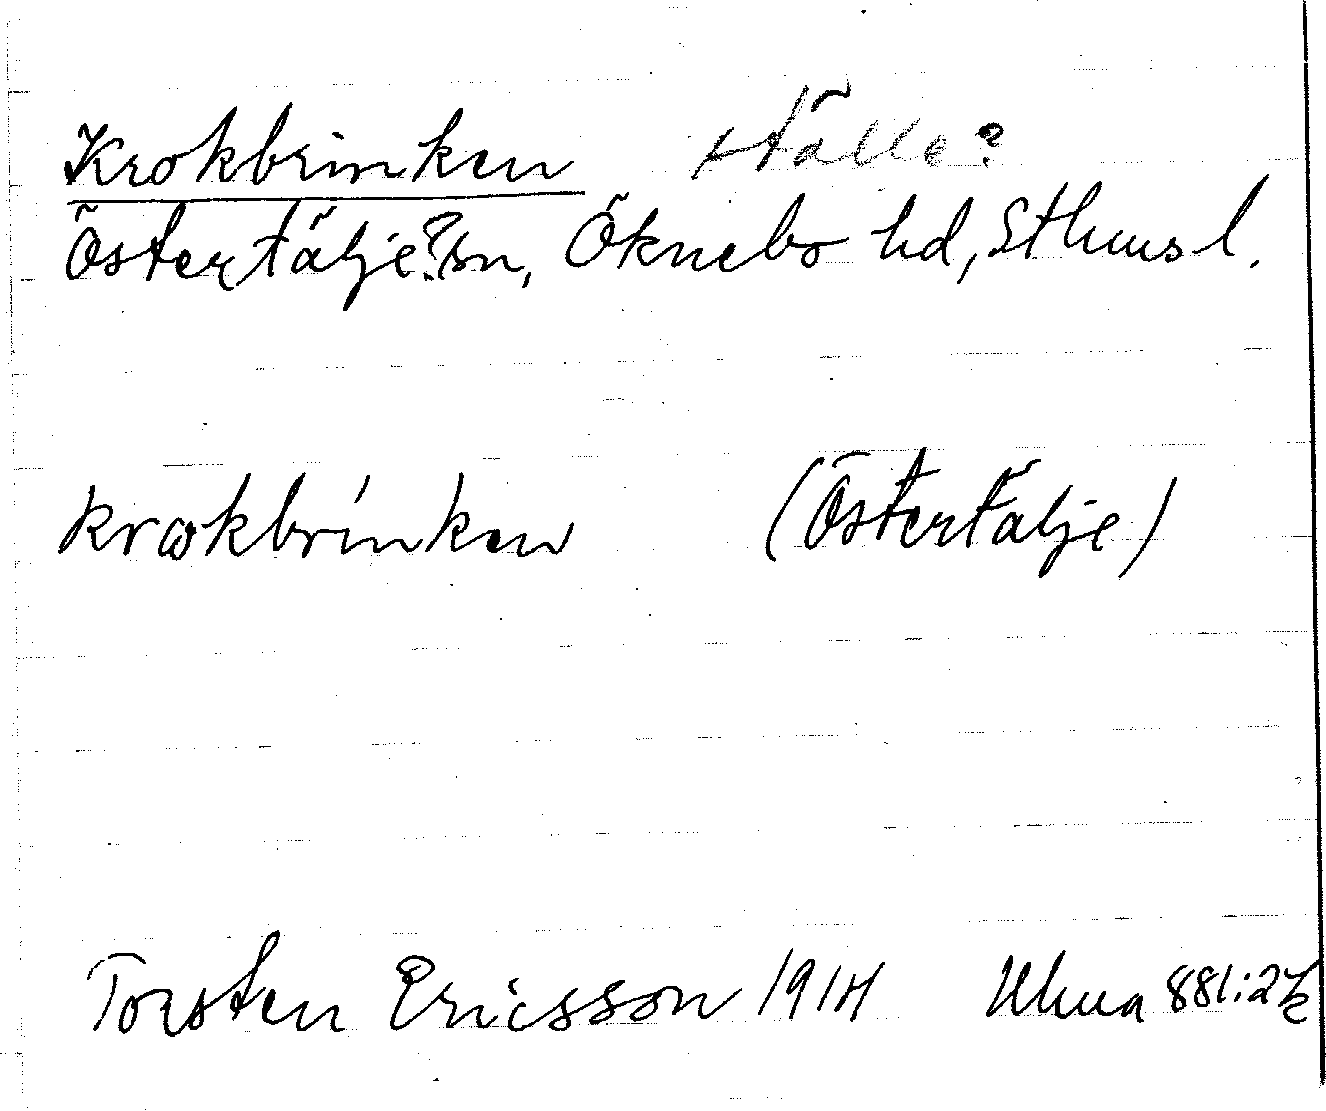 Krokbrinken ställe?
Östertälje? sn, Öknebo hd, Sthms l.
krokbrinken (Östertälje)
Torsten Ericsson 1914 Uluna 881:2